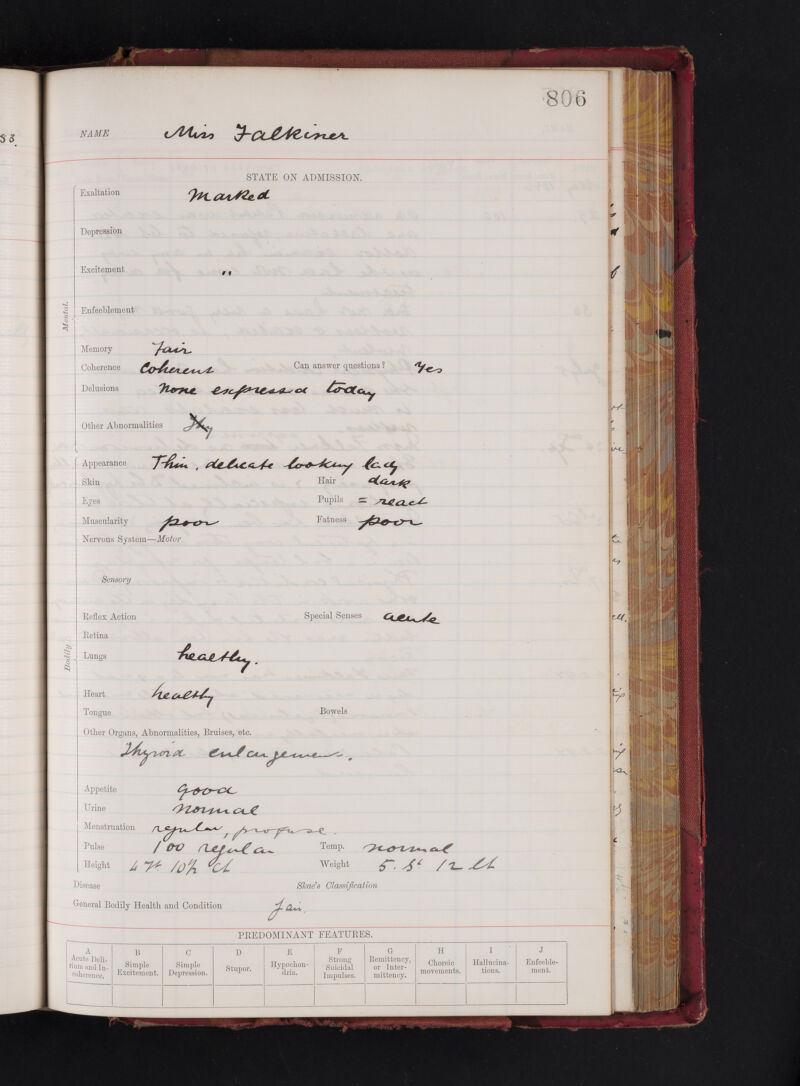 806
53.
NAME Miss Falkiner
STATE ON ADMISSION.
Mental.
Exaltation Marked
Depression
Excitement "
Enfeeblement
Memory Fair
Coherence Coherent Can answer questions? Yes
Delusions None expressed today
Other Abnormalities Thy
Bodily
Appearance Thin, delicate looking lady
Skin Hair dark
Eyes Pupils = react
Muscularity poor Fatness poor
Nervous System—Motor
Sensory
Reflex Action Special Senses acute
Retina
Lungs healthy.
Heart healthy
Tongue Bowels
Other Organs, Abnormalities, Bruises, etc.
Thyroid enlargement.
Appetite Good
Urine normal
Menstruation regular, profuse.
Pulse 100 regular Temp. normal
Height 4 ft 10½ Weight 5. St 12 lb
Disease Skae's Classification
General Bodily Health and Condition Fair.
PREDOMINANT FEATURES.
A B C D E F G H I J
Acute Delirium and Incoherence. Simple Excitement. Simple Depression. Stupor. Hypochondria. Strong Suicidal Impulses. Remittency, or Intermittency. Choreic movements. Hallucinations. Enfeeblement.